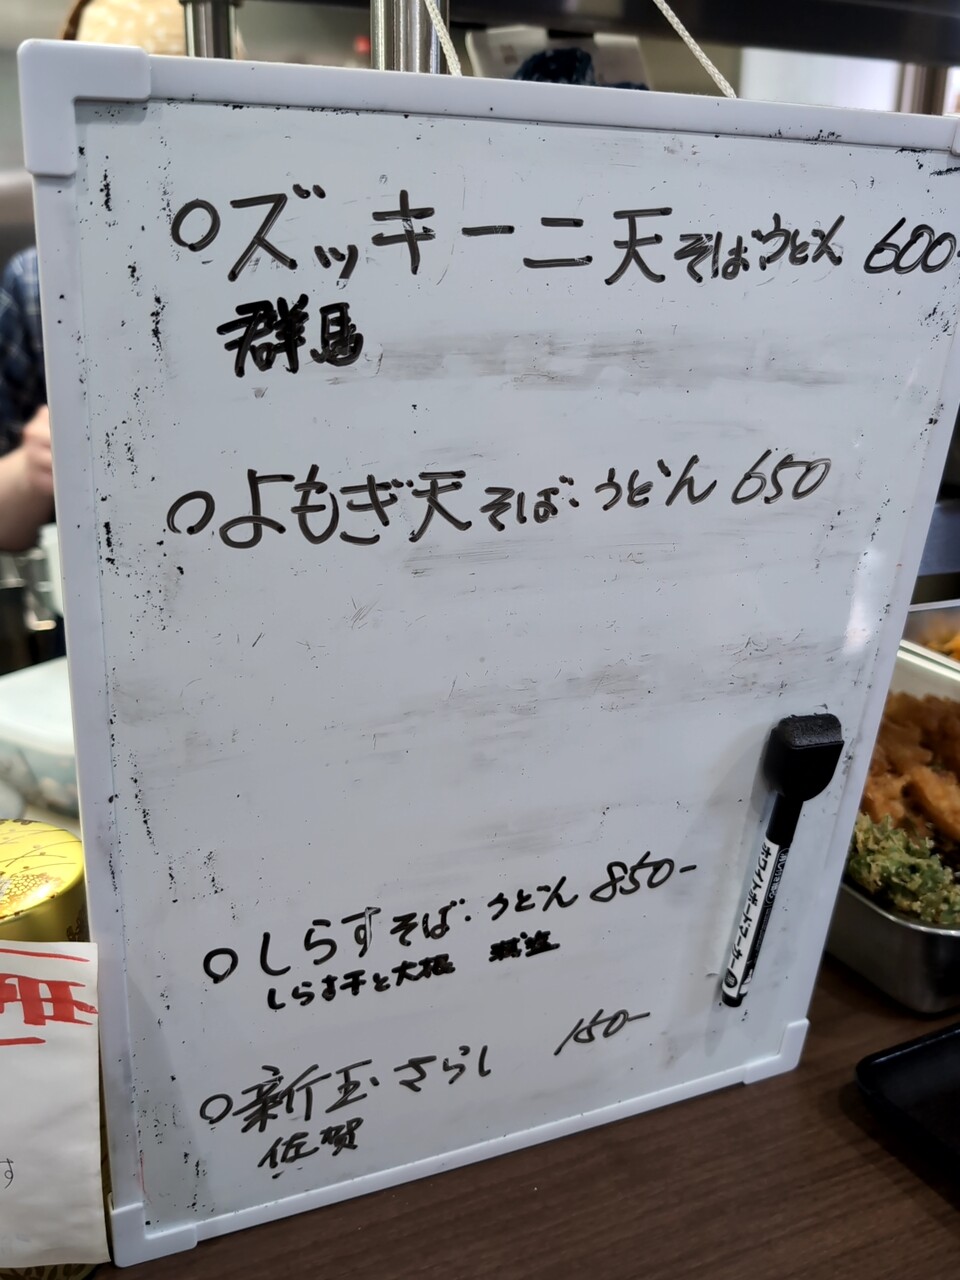 ○ズッキーニ天そば・うどん 600-
群馬
○よもぎ天そば・うどん 650
○しらすそば・うどん 850-
しらす干と大根 減塩
○新玉さらし 150-
佐賀
ホワイトボードマーカー
す